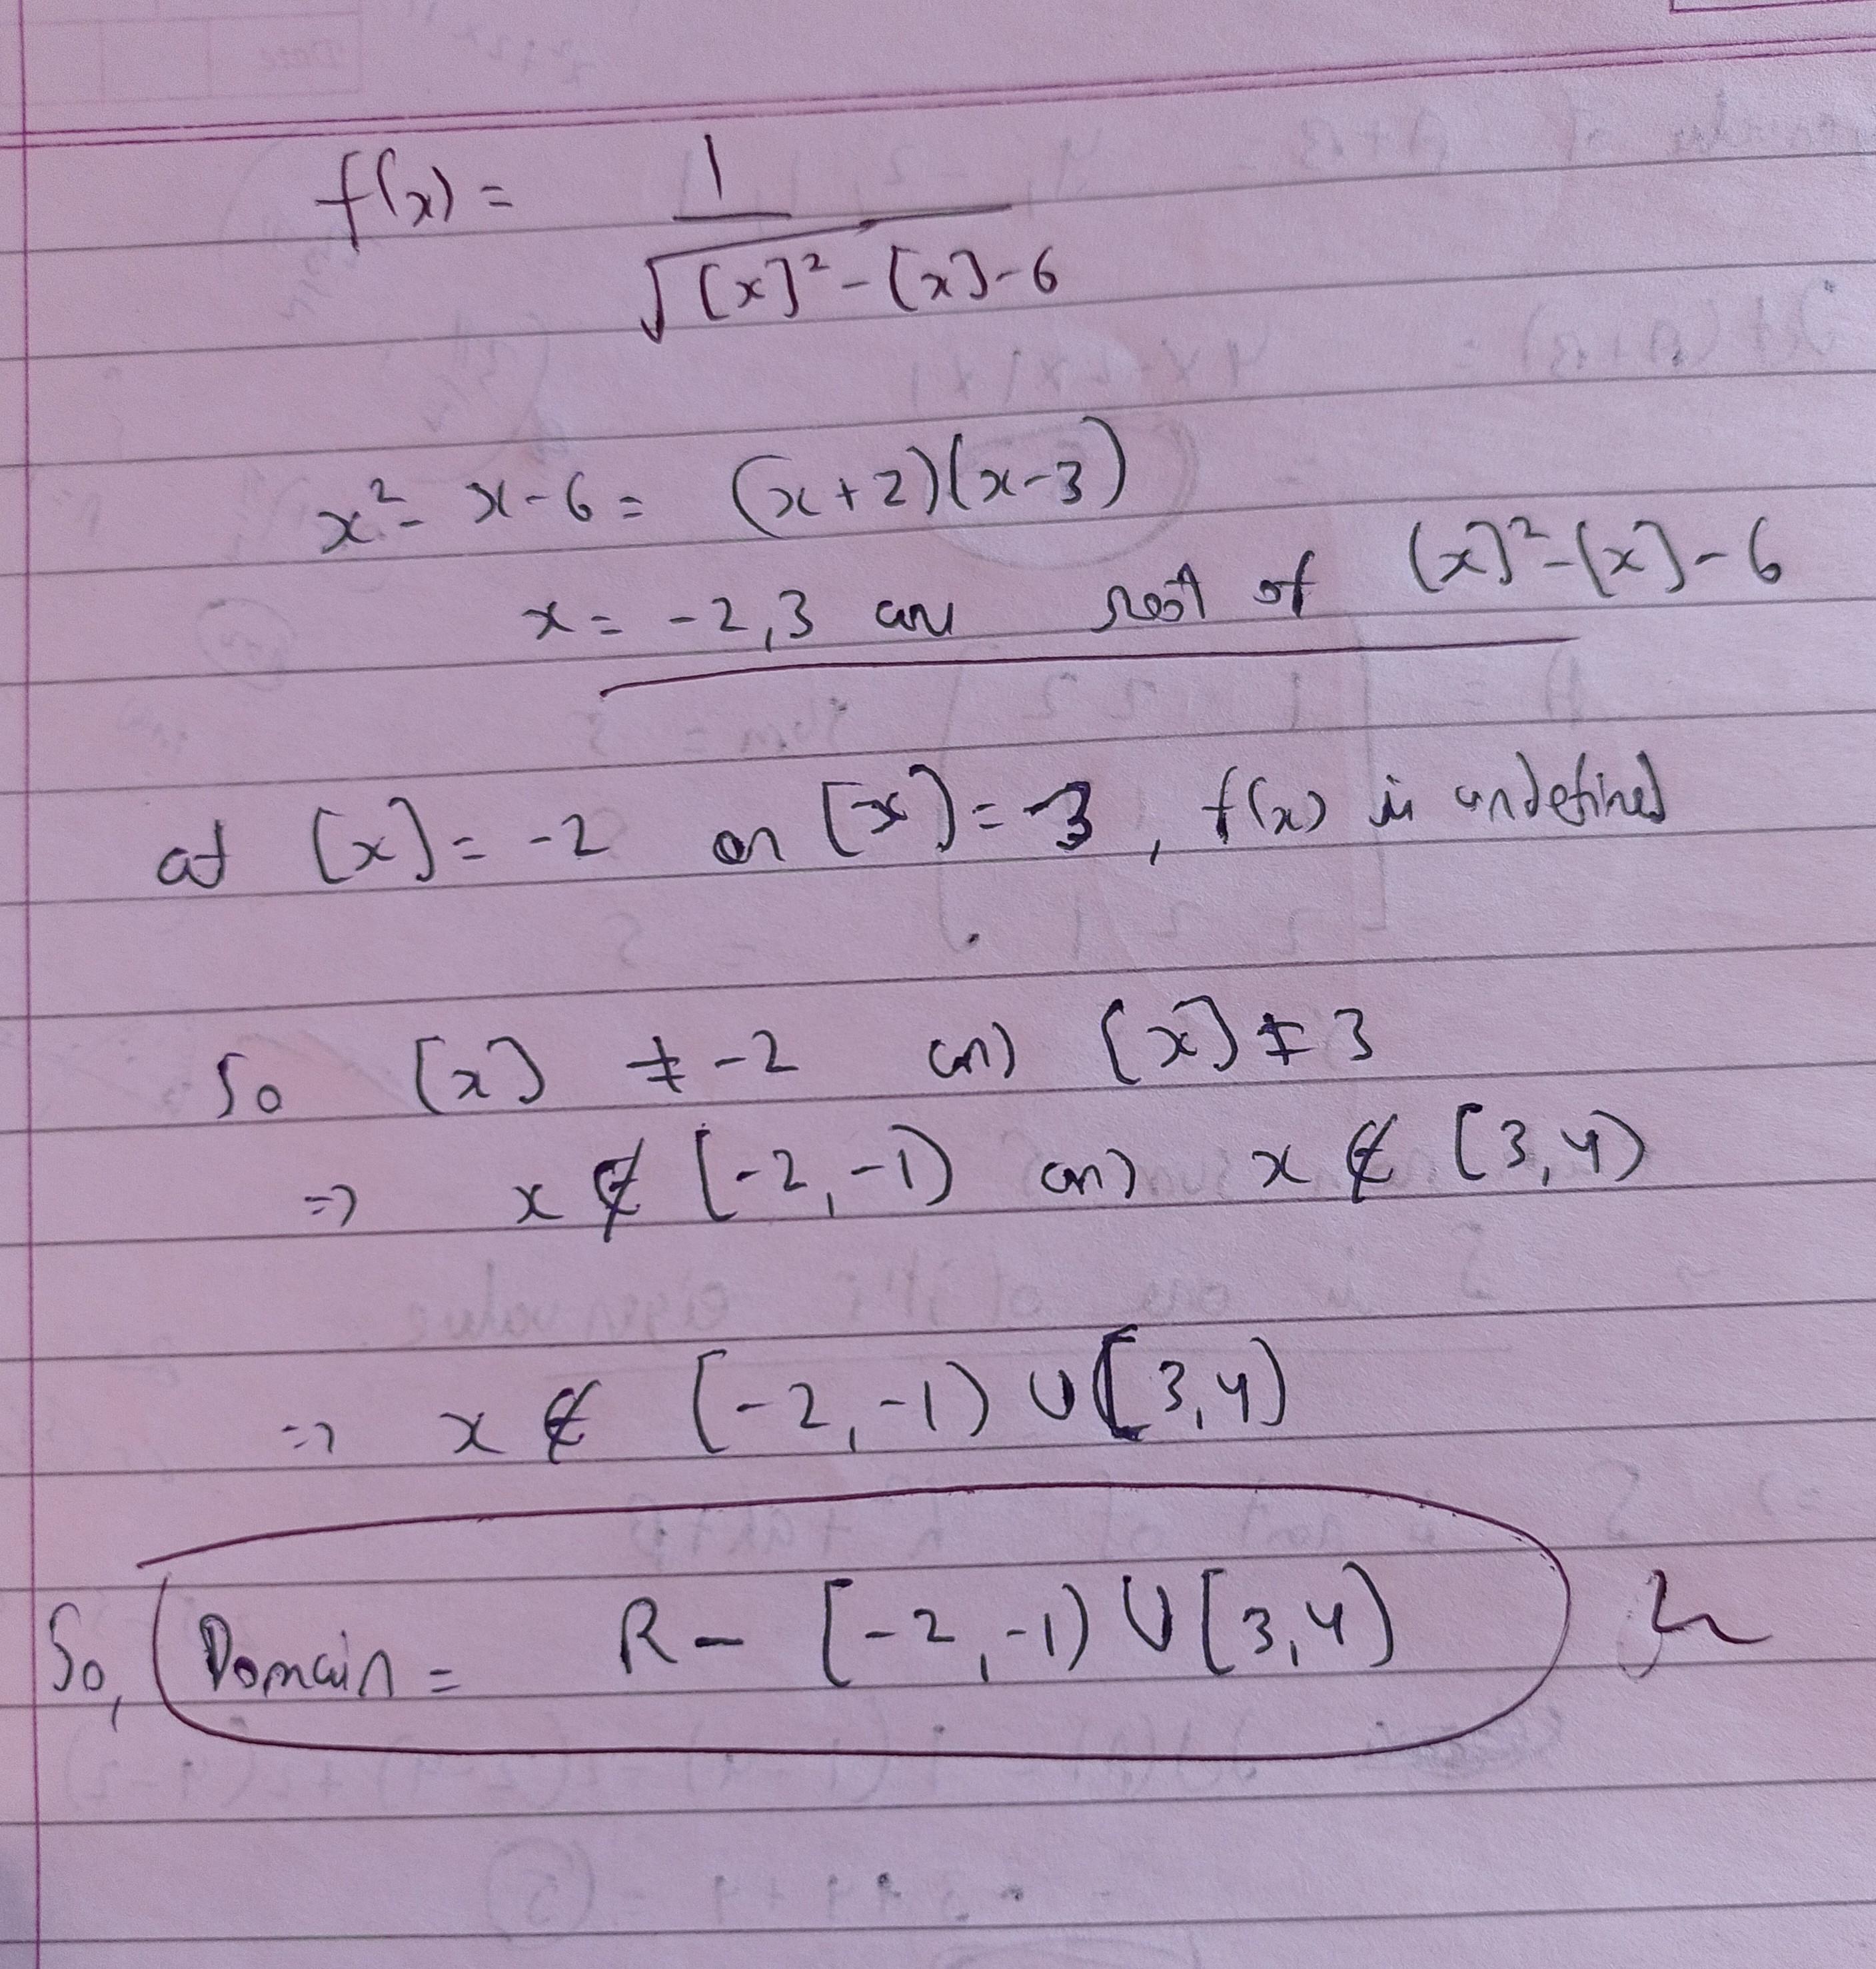 f(x) = 1 / √([x]² - [x] - 6)
x² - x - 6 = (x+2)(x-3)
x = -2, 3 are root of [x]² - [x] - 6
at [x] = -2 or [x] = 3, f(x) is undefined
So [x] ≠ -2 and [x] ≠ 3
=> x ∉ [-2, -1) and x ∉ [3, 4)
=> x ∉ [-2, -1) ∪ [3, 4)
So, Domain = R - [-2, -1) ∪ [3, 4)